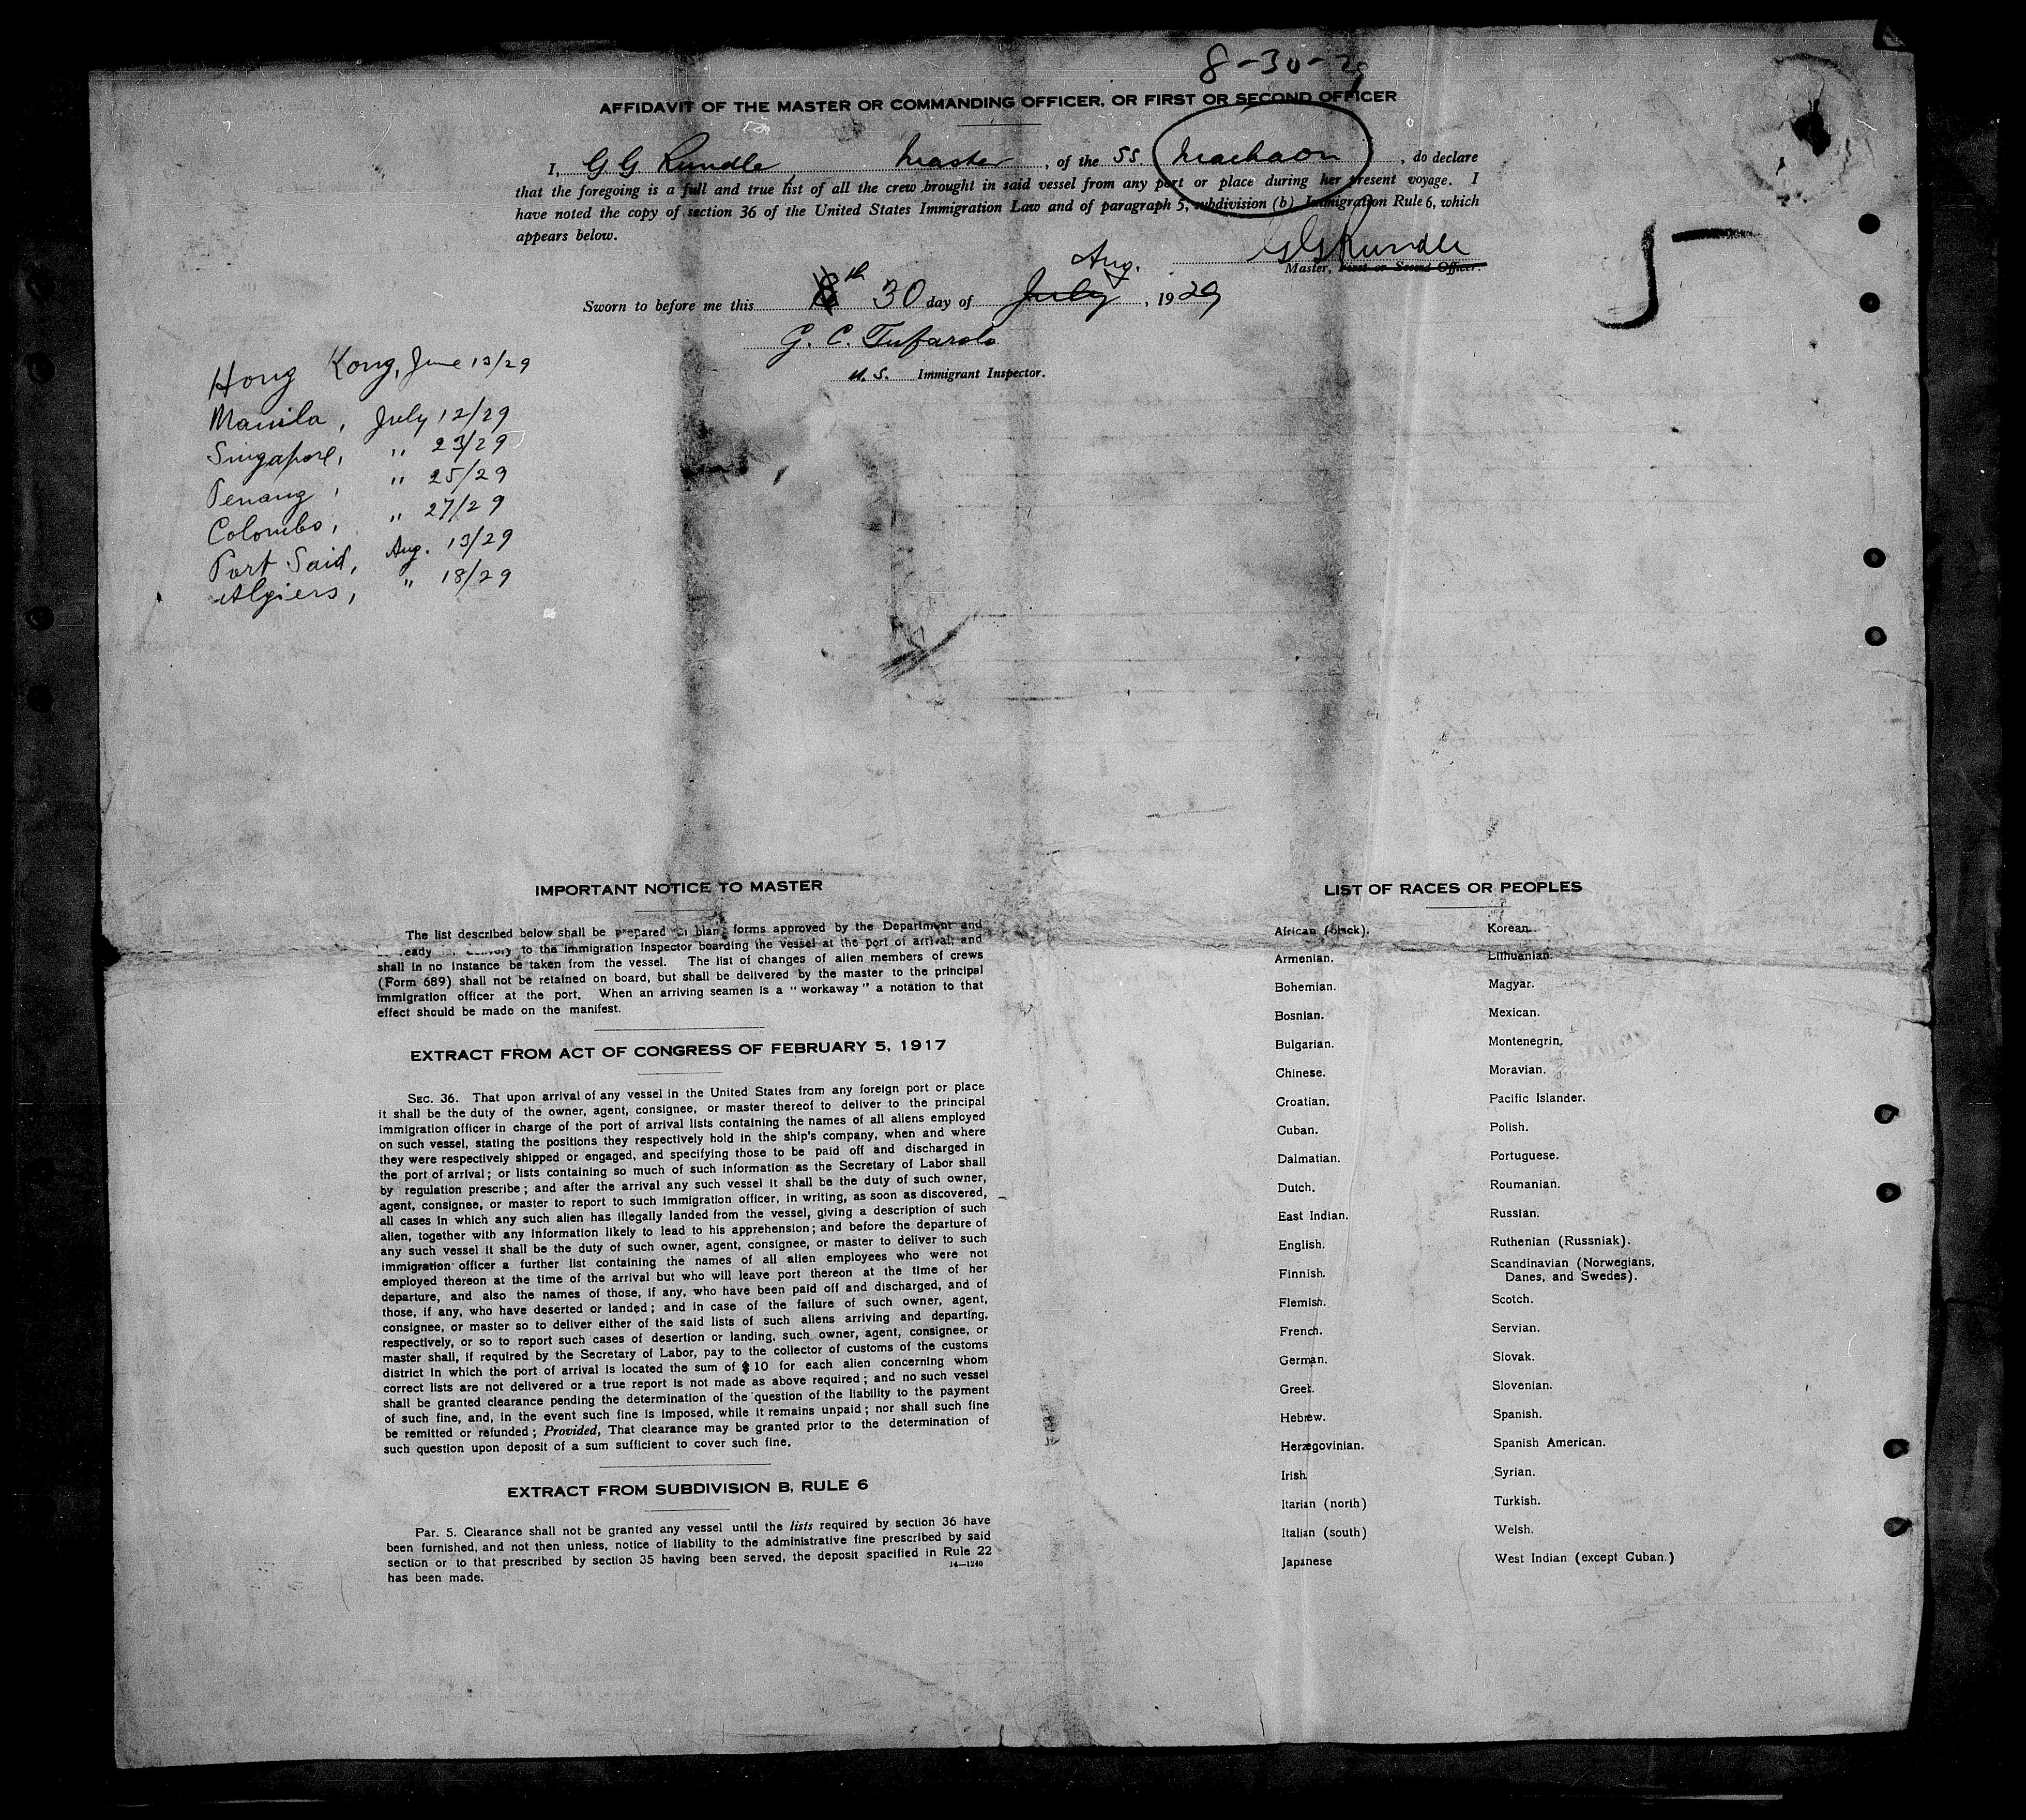 8-30-29
AFFIDAVIT OF THE MASTER OR COMMANDING OFFICER, OR FIRST OR SECOND OFFICER
I, G. G Rundle, Master, of the SS. Machaon, do declare
that the foregoing is a full and true list of all the crew brought in said vessel from any port or place during her present voyage. I
have noted the copy of section 36 of the United States Immigration Law and of paragraph 5, subdivision (b) Immigration Rule 6, which
appears below.
G G Rundle
Master, First or Second Officer.
Aug.
Sworn to before me this 8th 30 day of July, 1929
G. C. Tufarolo
U. S. Immigrant Inspector.
5
Hong Kong, June 13/29
Manila, July 12/29
Singapore, " 23/29
Penang, " 25/29
Colombo, " 27/29
Port Said, Aug. 13/29
Algiers, " 18/29
IMPORTANT NOTICE TO MASTER
The list described below shall be prepared blank forms approved by the Department and
ready delivery to the immigration inspector boarding the vessel at the port of arrival, and
shall in no instance be taken from the vessel. The list of changes of alien members of crews
(Form 689) shall not be retained on board, but shall be delivered by the master to the principal
immigration officer at the port. When an arriving seamen is a "workaway" a notation to that
effect should be made on the manifest.
EXTRACT FROM ACT OF CONGRESS OF FEBRUARY 5, 1917
SEC. 36. That upon arrival of any vessel in the United States from any foreign port or place
it shall be the duty of the owner, agent, consignee, or master thereof to deliver to the principal
immigration officer in charge of the port of arrival lists containing the names of all aliens employed
on such vessel, stating the positions they respectively hold in the ship's company, when and where
they were respectively shipped or engaged, and specifying those to be paid off and discharged in
the port of arrival; or lists containing so much of such information as the Secretary of Labor shall
by regulation prescribe; and after the arrival any such vessel it shall be the duty of such owner,
agent, consignee, or master to report to such immigration officer, in writing, as soon as discovered,
all cases in which any such alien has illegally landed from the vessel, giving a description of such
alien, together with any information likely to lead to his apprehension; and before the departure of
any such vessel it shall be the duty of such owner, agent, consignee, or master to deliver to such
immigration officer a further list containing the names of all alien employees who were not
employed thereon at the time of the arrival but who will leave port thereon at the time of her
departure, and also the names of those, if any, who have been paid off and discharged, and of
those, if any, who have deserted or landed; and in case of the failure of such owner, agent,
consignee, or master so to deliver either of the said lists of such aliens arriving and departing,
respectively, or so to report such cases of desertion or landing, such owner, agent, consignee, or
master shall, if required by the Secretary of Labor, pay to the collector of customs of the customs
district in which the port of arrival is located the sum of $10 for each alien concerning whom
correct lists are not delivered or a true report is not made as above required; and no such vessel
shall be granted clearance pending the determination of the question of the liability to the payment
of such fine, and, in the event such fine is imposed, while it remains unpaid; nor shall such fine
be remitted or refunded; Provided, That clearance may be granted prior to the determination of
such question upon deposit of a sum sufficient to cover such fine.
EXTRACT FROM SUBDIVISION B, RULE 6
Par. 5. Clearance shall not be granted any vessel until the lists required by section 36 have
been furnished, and not then unless, notice of liability to the administrative fine prescribed by said
section or to that prescribed by section 35 having been served, the deposit spacified in Rule 22
has been made.
14—1240
LIST OF RACES OR PEOPLES
African (black).
Armenian.
Bohemian.
Bosnian.
Bulgarian.
Chinese.
Croatian.
Cuban.
Dalmatian.
Dutch.
East Indian.
English.
Finnish.
Flemish.
French.
German.
Greek.
Hebrew.
Herzegovinian.
Irish
Itarian (north)
Italian (south)
Japanese
Korean.
Lithuanian.
Magyar.
Mexican.
Montenegrin.
Moravian.
Pacific Islander.
Polish.
Portuguese.
Roumanian.
Russian.
Ruthenian (Russniak).
Scandinavian (Norwegians,
Danes, and Swedes).
Scotch.
Servian.
Slovak.
Slovenian.
Spanish.
Spanish American.
Syrian.
Turkish.
Welsh.
West Indian (except Cuban.)